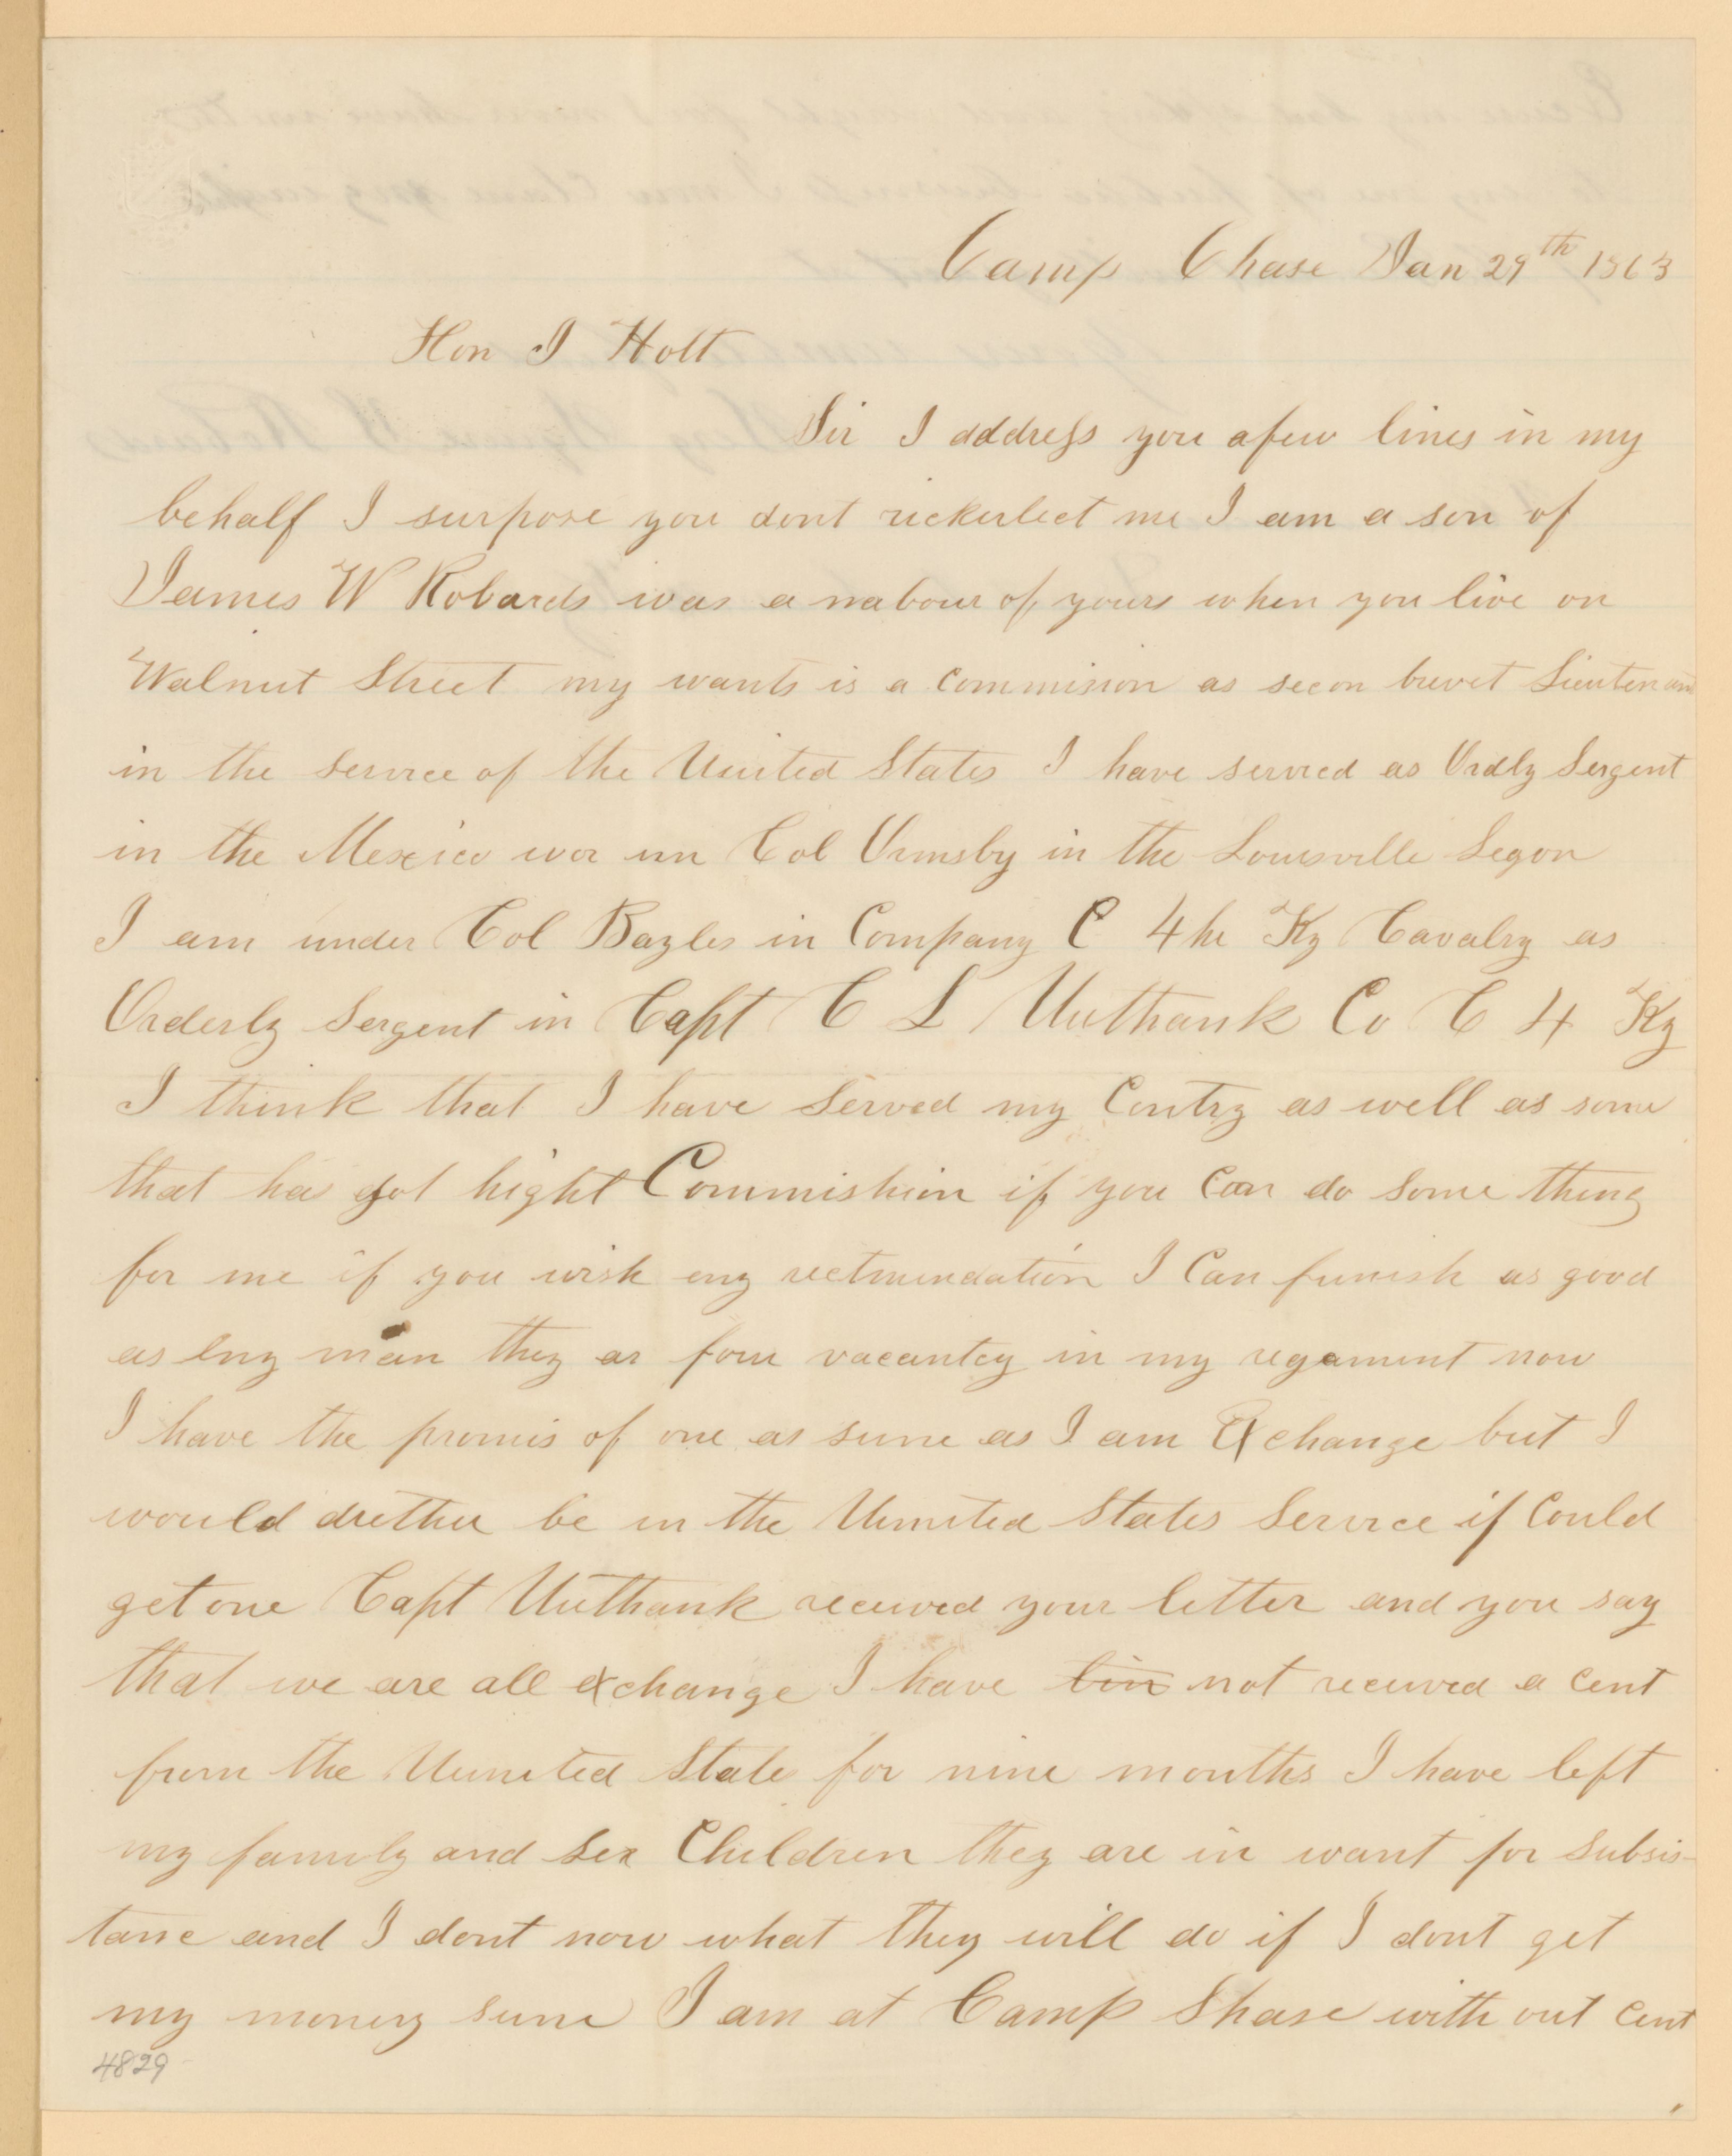 Camp Chase Jan 29th 1863
Hon J Holt
Sir I address you afew lines in my
behalf I surpose you dont rickerlect me I am a son of
James W Robards was a nabour of yours when you live on
Walnut Street my wants is a commision as secon brevet Lieutenant
in the service of the United States I have serviced as Ordly Sergent
in the Mexico wor un Col Ormsby in the Louisville Legon
I am under Col Bayles in Company C 4he Ky Cavalry as
Orderly Sergent in Capt C L Unthank Co C 4 Ky
I think that I have served my Contry as well as some
that ha got hight Commishion if you can do some thing
for me if you wish eny rectmendation I Can furnish as good
as eny man they ar four vacantcy in my regament now
I have the promis of one as sune as I am Exchange but I
would drether be in the Uunited States Service if Could
get one Capt Unthank received your letter and you say
that we are all exchange I have bin not received a cent
from the Uunited State for nine months I have left
my family and sex Children they are in want for subsis-
tance and I dont now what they will do if I dont get
my money sune I am at Camp Shase with out cent
4829